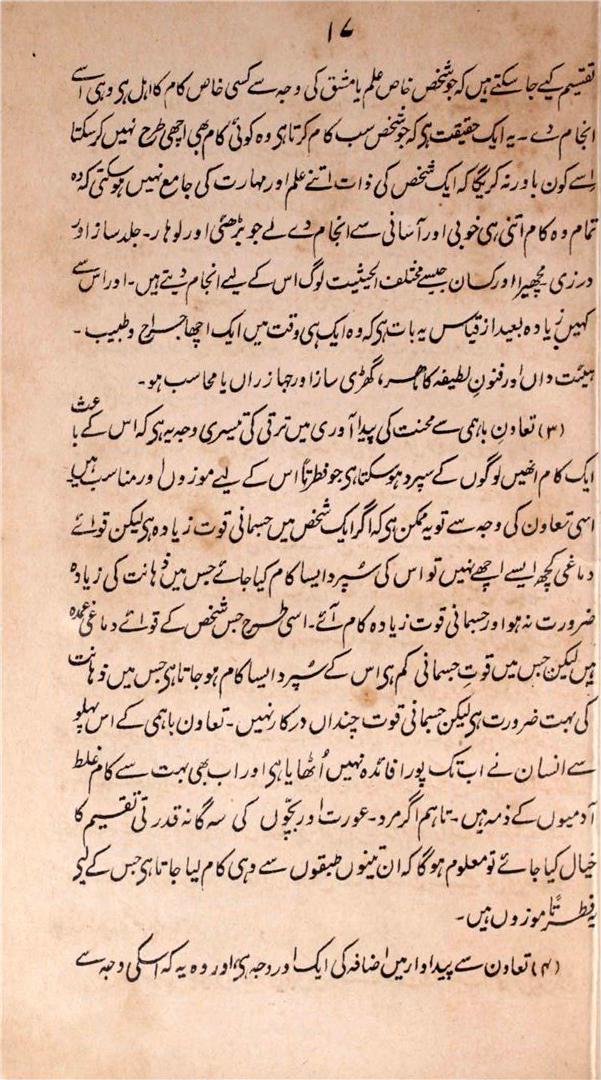 ۱۷
تقسیم کیے جا سکتے ہیں کہ جو شخص خاص علم یا مشق کی وجہ سے کسی خاص کام کا اہل ہی وہی اسے
انجام دے ۔ یہ ایک حقیقت ہی کہ جو شخص سب کام کرتا ہی وہ کوئی کام بھی اچھی طرح نہیں کر سکتا
اسے کون باور نہ کریگا کہ ایک شخص کی ذات اتنے علم اور مہارت کی جامع نہیں ہو سکتی کہ وہ
تمام وہ کام اتنی ہی خوبی اور آسانی سے انجام دے لے جو بڑھئی اور لوہار ۔ جلد ساز اور
درزی مچھیرا اور کسان جیسے مختلف الحیثیت لوگ اس کے لیے انجام دیتے ہیں ۔ اور اس سے
کہیں زیادہ بعید از قیاس یہ بات ہی کہ وہ ایک ہی وقت میں ایک اچھا جراح و طبیب ۔
ہیئت داں اور فنون لطیفہ کا ماہر، گھڑی ساز اور جہاز راں یا محاسب ہو ۔
(۳) تعاون باہمی سے محنت کی پیداآوری میں ترقی کی تیسری وجہ یہ ہی کہ اس کے باعث
ایک کام انھیں لوگوں کے سپرد ہو سکتا ہی جو فطرتاً اس کے لیے موزوں اور مناسب ہیں
اسی تعاون کی وجہ سے تو یہ ممکن ہی کہ اگر ایک شخص میں جسمانی قوت زیادہ ہی لیکن قوائے
دماغی کچھ ایسے اچھے نہیں تو اس کی سُپرد ایسا کام کیا جائے جس میں ذہانت کی زیادہ
ضرورت نہ ہو اور جسمانی قوت زیادہ کام آئے ۔ اسی طرح جس شخص کے قوائے دماغی عمدہ
ہیں لیکن جس میں قوتِ جسمانی کم ہی اس کے سُپرد ایسا کام ہو جاتا ہی جس میں ذہانت
کی بہت ضرورت ہی لیکن جسمانی قوت چنداں درکار نہیں ۔ تعاون باہمی کے اس پہلو
سے انسان نے اب تک پورا فائدہ نہیں اُٹھایا ہی اور اب بھی بہت سے کام غلط
آدمیوں کے ذمہ ہیں ۔ تاہم اگر مرد ۔ عورت اور بچّوں کی سہ گانہ قدرتی تقسیم کا
خیال کیا جائے تو معلوم ہوگا کہ ان تینوں طبقوں سے وہی کام لیا جاتا ہی جس کے لیے
یہ فطرتًا موزوں ہیں ۔
(۴) تعاون سے پیداوار میں اضافہ کی ایک اور وجہ ہی، اور وہ یہ کہ اسکی وجہ سے